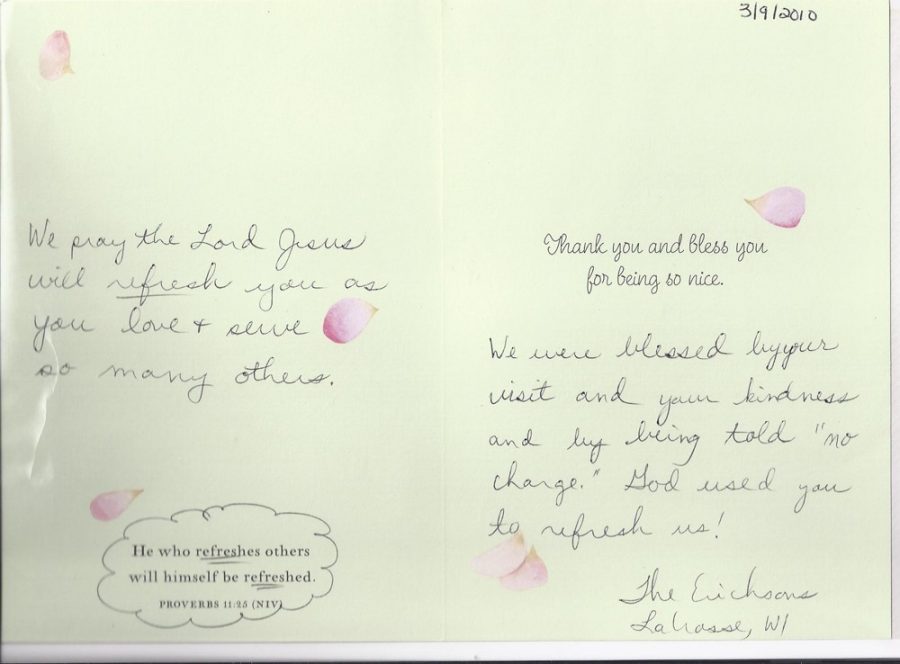 We pray the Lord Jesus
will refresh you as
you love + serve
so many others.
He who refreshes others
will himself be refreshed.
PROVERBS 11:25 (NIV)
3/9/2010
Thank you and bless you
for being so nice.
We were blessed by your
visit and your kindness
and by being told "no
charge." God used you
to refresh us!
The Ericksons
LaCrosse, WI